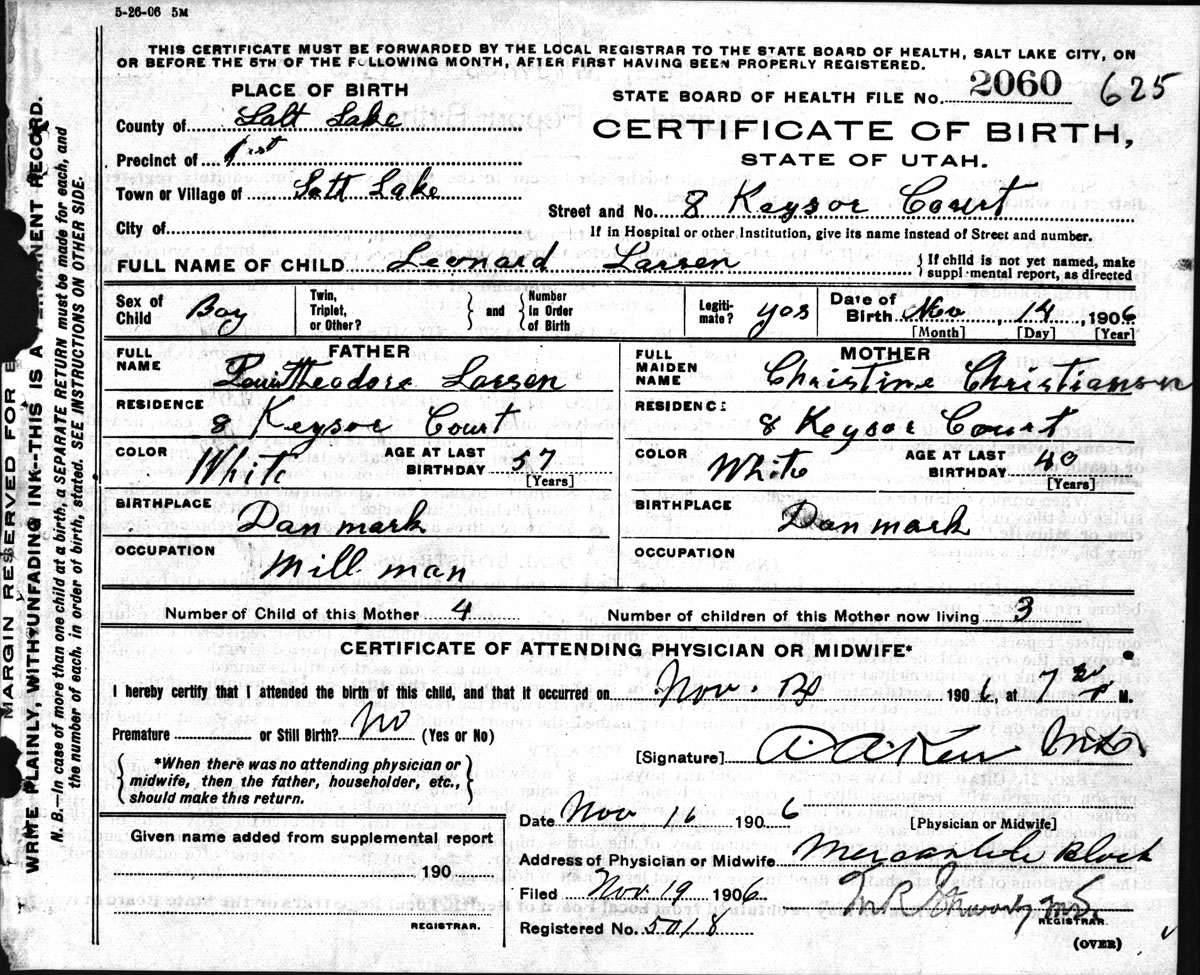 5-26-06 5M
THIS CERTIFICATE MUST BE FORWARDED BY THE LOCAL REGISTRAR TO THE STATE BOARD OF HEALTH, SALT LAKE CITY, ON
OR BEFORE THE 5TH OF THE FOLLOWING MONTH, AFTER FIRST HAVING BEEN PROPERLY REGISTERED.
PLACE OF BIRTH
STATE BOARD OF HEALTH FILE No. 2060 625
County of Salt Lake
CERTIFICATE OF BIRTH,
Precinct of 1st
STATE OF UTAH.
Town or Village of Salt Lake
Street and No. 8 Keysor Court
City of
If in Hospital or other Institution, give its name instead of Street and number.
FULL NAME OF CHILD Leonard Larsen { If child is not yet named, make
suppl mental report, as directed
Sex of Child Boy Twin, Triplet, or Other? } and { Number in Order of Birth Legiti-mate? yes Date of Birth Nov, 14, 1906
[Month] [Day] [Year]
FATHER
FULL NAME Louis Theodore Larsen
RESIDENCE 8 Keysor Court
COLOR White AGE AT LAST BIRTHDAY 57
[Years]
BIRTHPLACE Danmark
OCCUPATION Mill man
MOTHER
FULL MAIDEN NAME Christine Christianson
RESIDENCE 8 Keysor Court
COLOR White AGE AT LAST BIRTHDAY 40
[Years]
BIRTHPLACE Danmark
OCCUPATION
Number of Child of this Mother 4 Number of children of this Mother now living 3
CERTIFICATE OF ATTENDING PHYSICIAN OR MIDWIFE*
I hereby certify that I attended the birth of this child, and that it occurred on Nov. 14 1906, at 7 M.
Premature or Still Birth? No (Yes or No)
[Signature]
{ *When there was no attending physician or
midwife, then the father, householder, etc.,
should make this return. }
Date Nov 16 1906 [Physician or Midwife]
Given name added from supplemental report
190
REGISTRAR.
Address of Physician or Midwife Mercantile Block
Filed Nov. 19 1906
REGISTRAR.
Registered No. 5018
(OVER)
MARGIN RESERVED FOR B
WRITE PLAINLY, WITH UNFADING INK--THIS IS A PERMANENT RECORD.
N. B.—In case of more than one child at a birth, a SEPARATE RETURN must be made for each, and
the number of each, in order of birth, stated. SEE INSTRUCTIONS ON OTHER SIDE.